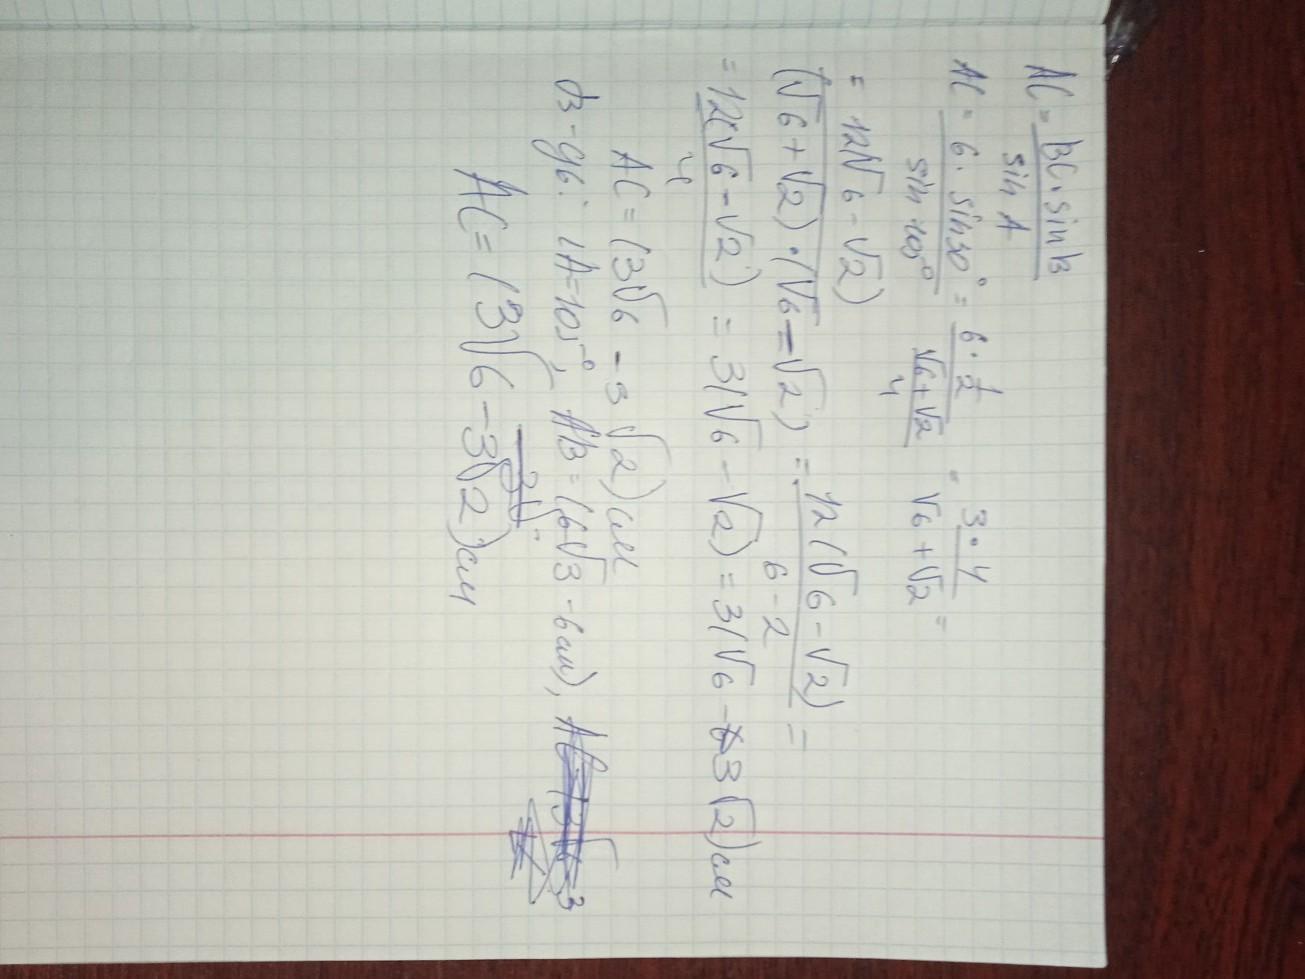 AC = BC·sin B / sin A
AC = 6·sin 30° / sin 105° = 6·1/2 / (√6+√2)/4 = 3·4 / √6+√2 =
= 12(√6-√2) / (√6+√2)·(√6-√2) = 12(√6-√2) / 6-2 =
= 12(√6-√2) / 4 = 3(√6-√2) = 3(√6-3√2) см
AC = (3√6-3√2) см
∠A=105°, AB = (6√3-6см),
AC = (3√6-3√2) см